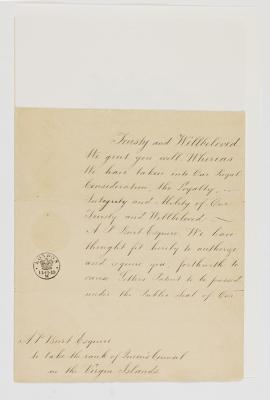 Trusty and Wellbeloved
We greet you well Whereas
We have taken into Our Royal
Consideration, the Loyalty,
Integrity and Ability of Our
Trusty and Wellbeloved
Esquire We have
thought fit hereby to authorize
and require you, forthwith to
cause Letters Patent to be passed
under the Public Seal of Our
LONDON
Esquire
to take the rank of Queen's Counsel
in the Virgin Islands